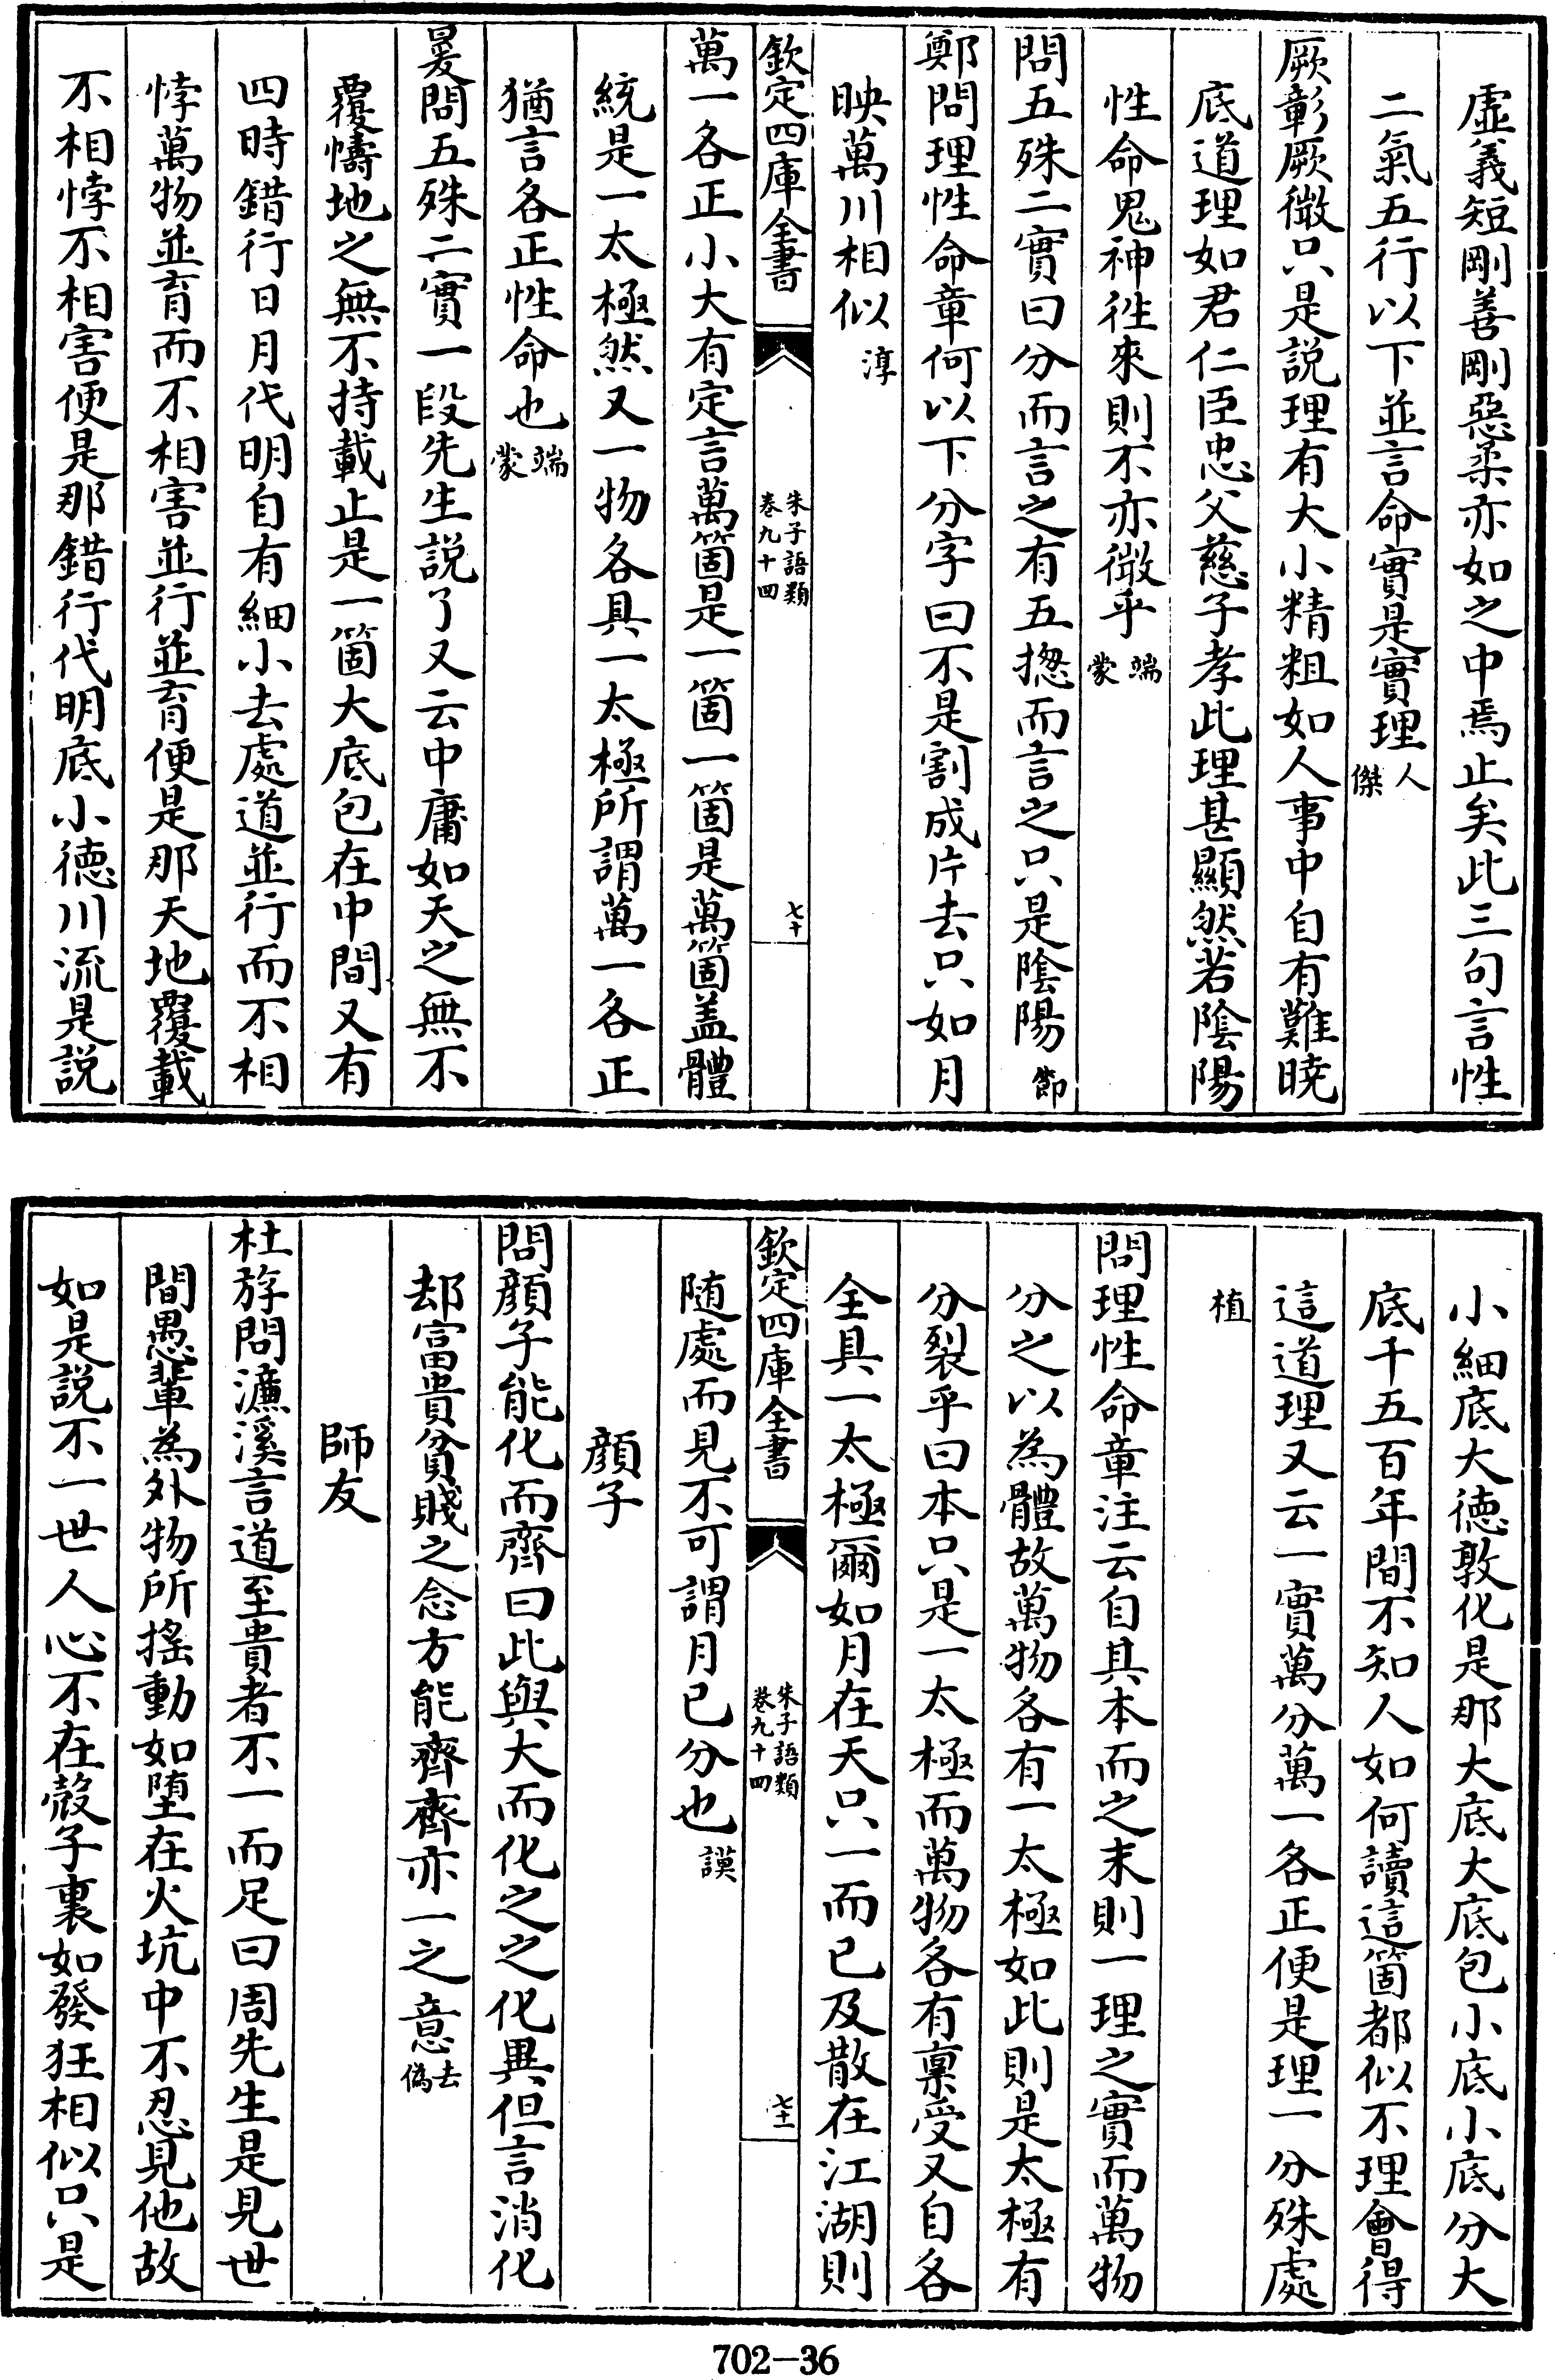 虛義短剛善剛惡柔亦如之中焉止矣此三句言性
二氣五行以下並言命實是實理人傑
厥彰厥微只是說理有大小精粗如人事中自有難曉
底道理如君仁臣忠父慈子孝此理甚顯然若陰陽
性命鬼神徃來則不亦微乎端蒙
問五殊二實曰分而言之有五揔而言之只是陰陽節
鄭問理性命章何以下分字曰不是割成片去只如月
映萬川相似淳
欽定四庫全書
朱子語類
卷九十四
七十
萬一各正小大有定言萬箇是一箇一箇是萬箇盖體
統是一太極然又一物各具一太極所謂萬一各正
猶言各正性命也端蒙
㬊問五殊二實一段先生說了又云中庸如天之無不
覆幬地之無不持載止是一箇大底包在中間又有
四時錯行日月代明自有細小去處道並行而不相
悖萬物並育而不相害並行並育便是那天地覆載
不相悖不相害便是那錯行代明底小德川流是說
小細底大德敦化是那大底大底包小底小底分大
底千五百年間不知人如何讀這箇都似不理會得
這道理又云一實萬分萬一各正便是理一分殊處
植
問理性命章注云自其本而之末則一理之實而萬物
分之以為體故萬物各有一太極如此則是太極有
分裂乎曰本只是一太極而萬物各有稟受又自各
全具一太極爾如月在天只一而已及散在江湖則
欽定四庫全書
朱子語類
卷九十四
七十一
随處而見不可謂月已分也謨
顔子
問顔子能化而齊曰此與大而化之之化異但言消化
却富貴貧賤之念方能齊齊亦一之意去偽
師友
杜斿問濂溪言道至貴者不一而足曰周先生是見世
間愚輩為外物所搖動如墮在火坑中不忍見他故
如是說不一世人心不在殻子裏如發狂相似只是
702-36